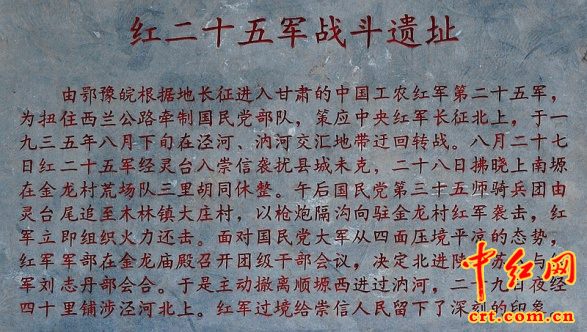 红二十五军战斗遗址
由鄂豫皖根据地长征进入甘肃的中国工农红军第二十五军，
为扭住西兰公路牵制国民党部队，策应中央红军长征北上，于一
九三五年八月下旬在泾河，汭河交汇地带迂回转战。八月二十七
日红二十五军经灵台入崇信袭扰县城未克，二十八日拂晓上南塬
在金龙村荒场队三里胡同休整。午后国民党第三十五师骑兵团由
灵台尾追至木林镇大庄村，以枪炮隔沟向驻金龙村红军袭击，红
军立即组织火力还击。面对国民党大军从四面压境平凉的态势，
红军军部在金龙庙殿召开团级干部会议，决定北进陕 苏 与
军刘志丹部会合。于是主动撤离顺塬西进过汭河，二十九日夜经
四十里铺涉泾河北上。红军过境给崇信人民留下了深刻的印象
中红网
crt.com.cn